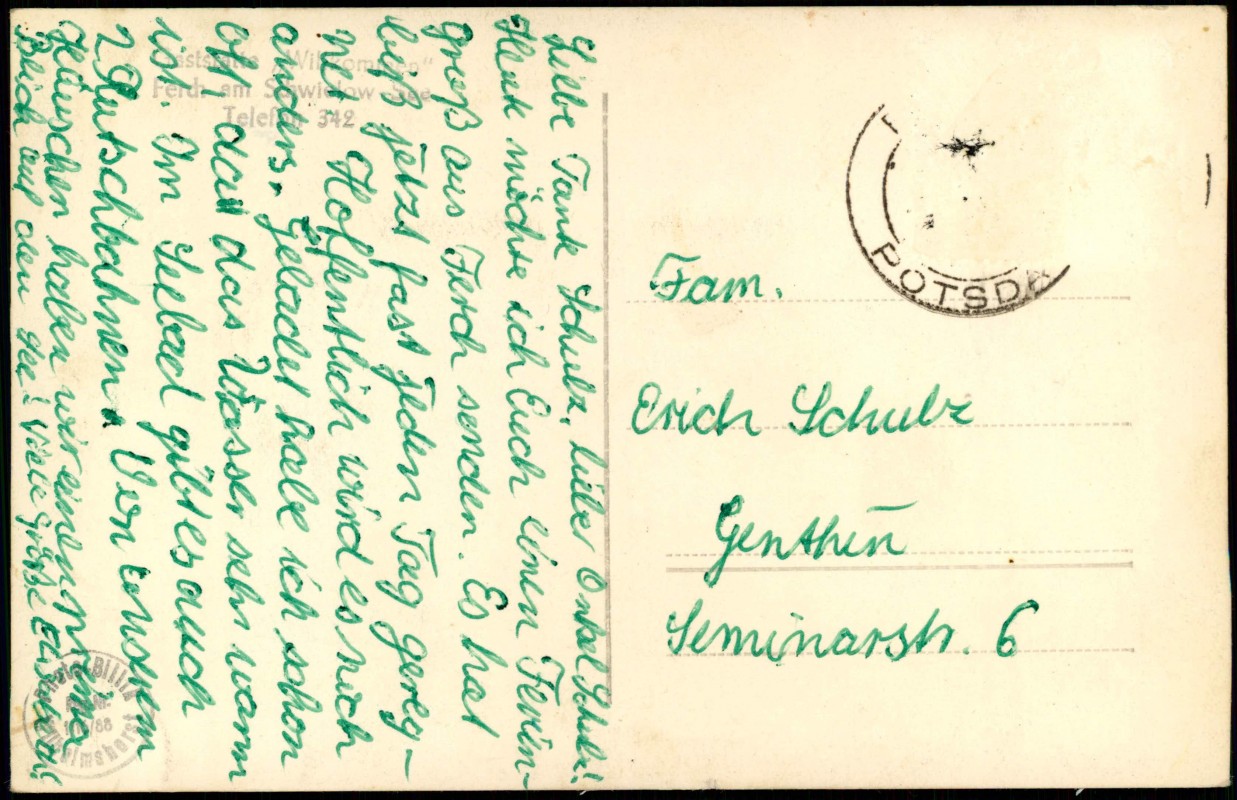 Liebe Tante Schulz, lieber Onkel Schulz!
Heute möchte ich Euch einen Ferien-
gruß aus Ferch senden. Es hat
biß jetzt fast jeden Tag gereg-
net. Hoffentlich wird es noch
anders. Gebadet habe ich schon
oft, da das Wasser sehr warm
ist. Im Seebad gibt es auch
2 Rutschbahnen. Von unserem
Häuschen haben wir einen
Blick auf den See! Viele Grüße
Gaststätte „Willkommen"
Ferch am Schwielow-See
Telefon 342
POTSDA
Fam.
Erich Schulz
Genthin
Seminarstr. 6